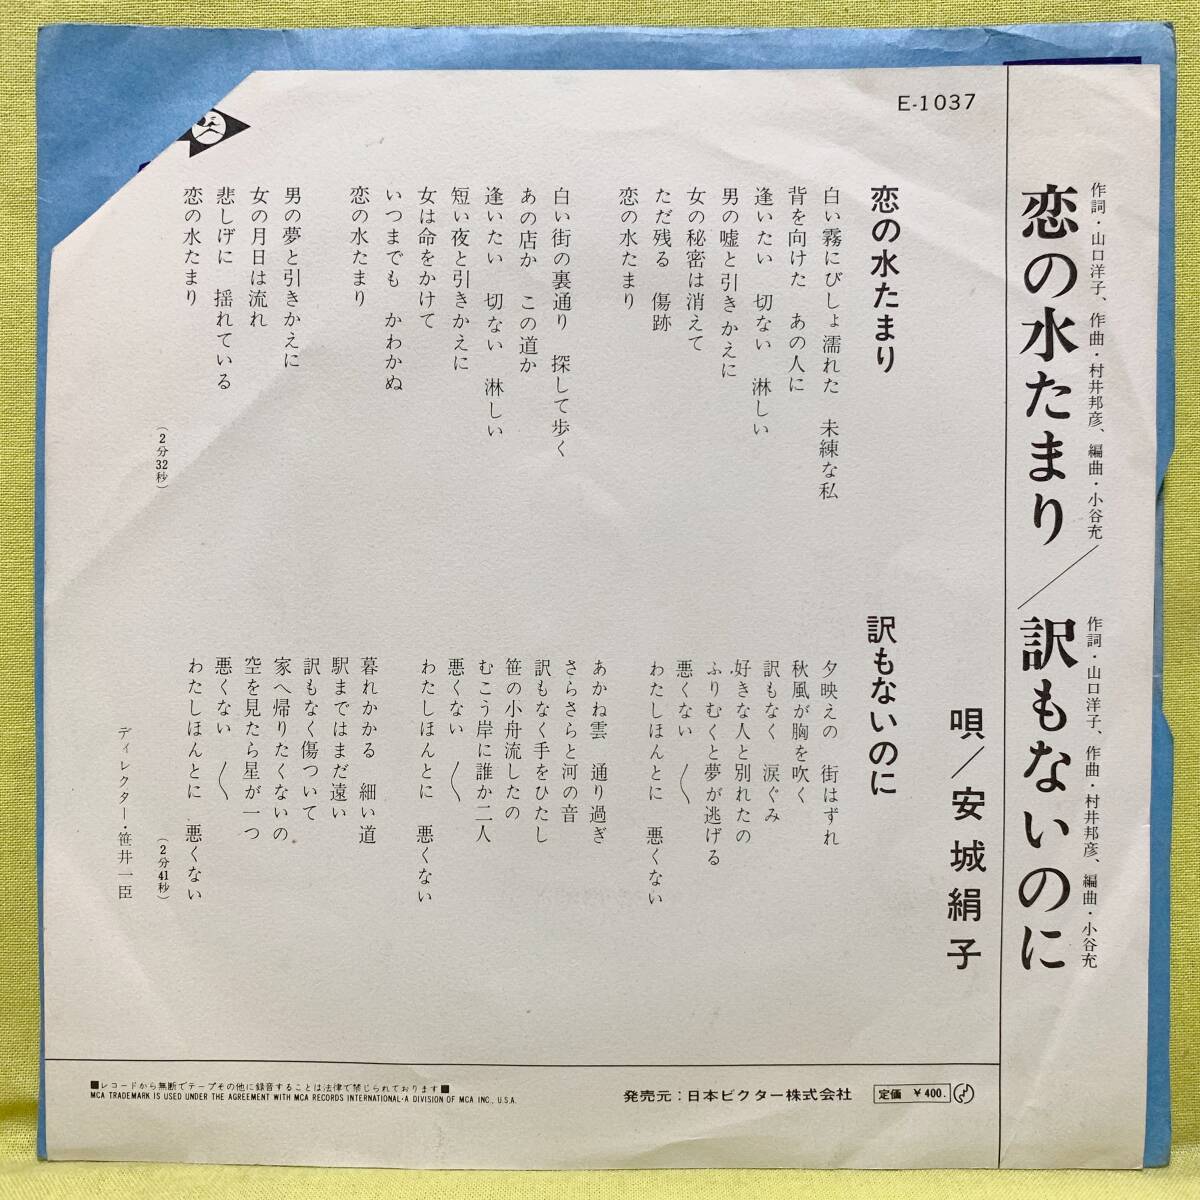 E-1037
作詞・山口洋子、作曲・村井邦彦、編曲・小谷充
恋の水たまり／
作詞・山口洋子、作曲・村井邦彦、編曲・小谷充
訳もないのに
唄／安城絹子
恋の水たまり
白い霧にびしょ濡れた　未練な私
背を向けた　あの人に
逢いたい　切ない　淋しい
男の嘘と引きかえに
女の秘密は消えて
ただ残る　傷跡
恋の水たまり
白い街の裏通り　探して歩く
あの店か　この道か
逢いたい　切ない　淋しい
短い夜と引きかえに
女は命をかけて
いつまでも　かわかぬ
恋の水たまり
男の夢と引きかえに
女の月日は流れ
悲しげに　揺れている
恋の水たまり
（2分32秒）
訳もないのに
夕映えの　街はずれ
秋風が胸を吹く
訳もなく　涙ぐみ
好きな人と別れたの
ふりむくと夢が逃げる
悪くない　〱
わたしほんとに　悪くない
あかね雲　通り過ぎ
さらさらと河の音
訳もなく手をひたし
笹の小舟流したの
むこう岸に誰か二人
悪くない　〱
わたしほんとに　悪くない
暮れかかる　細い道
駅まではまだ遠い
訳もなく傷ついて
家へ帰りたくないの
空を見たら星が一つ
悪くない　〱
わたしほんとに　悪くない
（2分41秒）
ディレクター・笹井一臣
■レコードから無断でテープその他に録音することは法律で禁じられております■
MCA TRADEMARK IS USED UNDER THE AGREEMENT WITH MCA RECORDS INTERNATIONAL・A DIVISION OF MCA INC., U.S.A.
発売元：日本ビクター株式会社
定価　￥400.